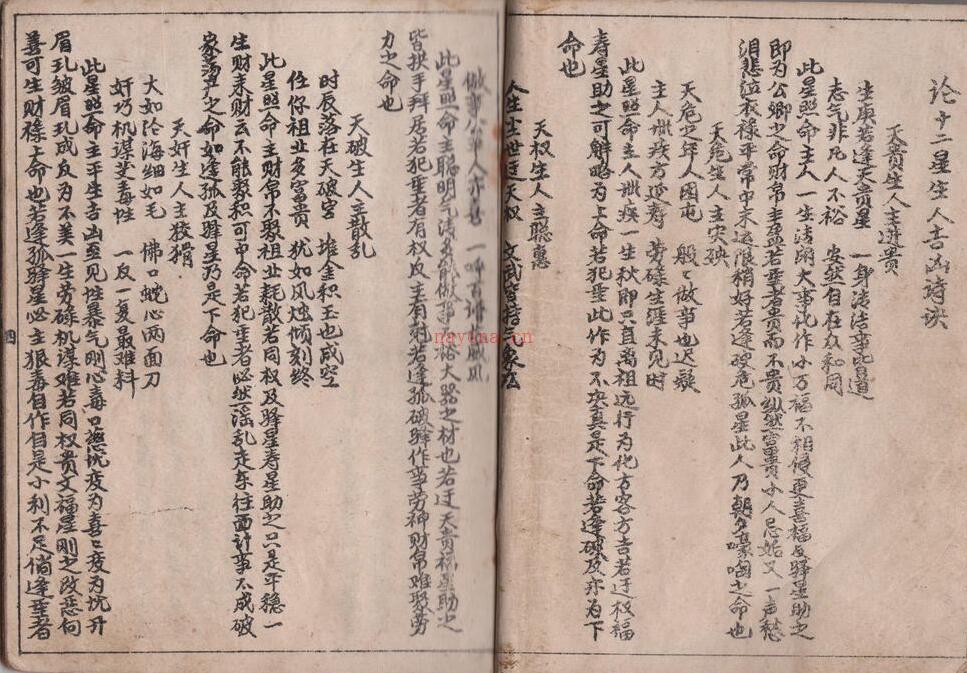 论十二星生人吉凶诗诀
天贵生人主进贵
生庚若逢天贵星 一身清洁事皆道
志气非凡人不裕 安然自在众和同
此星照命主人一生清闲大事化作小万福不相侵更喜福文驿星助之
即为公卿之命财帛丰盈若重者贵而不贵纵然富贵小人忌妬又一声愁
泪悲泣衣禄平常中末运限稍好若逢破危孤星此人乃朝夕嚎啕之命也
天危生人主灾殃
天危少年人困屯 般々做事也迟疑
主人批疾方延寿 劳碌生涯未见时
此星照命主人批疾一生狄即只宜离祖远行为化方客方吉若迂权福
寿星助之可解略为上命若犯重此作为不决真是下命若逢破及亦为下
命也
天权生人主聪惠
人生士世迂天权 文武皆特
做事公平人亦喜 一呼百诺
此星照命主聪明气清多能做事大器之材也若迂天贵福星助之
皆拱手拜居若犯重者有权反主有克若逢孤破驿作事劳神财帛难聚劳
力之命也
天破生人主散乱
时辰落在天破宫 堆金积玉也成空
任你祖业多富贵 犹如风烛倾刻终
此星照命主财帛不聚祖业耗散若同权及驿星寿星助之只是平稳一
生财来财去不能聚积可中命若犯重者必然淫乱走东往西计事不成破
家荡产之命如逢孤及驿星乃是下命也
天奸生人主狡猾
大如沧海细如毛 佛口蛇心两面刀
奸巧机谋笑毒性 一反一复最难料
此星照命主平生吉凶至见性暴气刚心毒口慈忧变为喜々变为忧升
眉玑皱眉玑成反为不美一生劳碌机谋难若同权贵文福星刚之改恶向
善可生财禄上命也若逢孤驿星必主狠毒自作自是小利不足倘逢重者
四